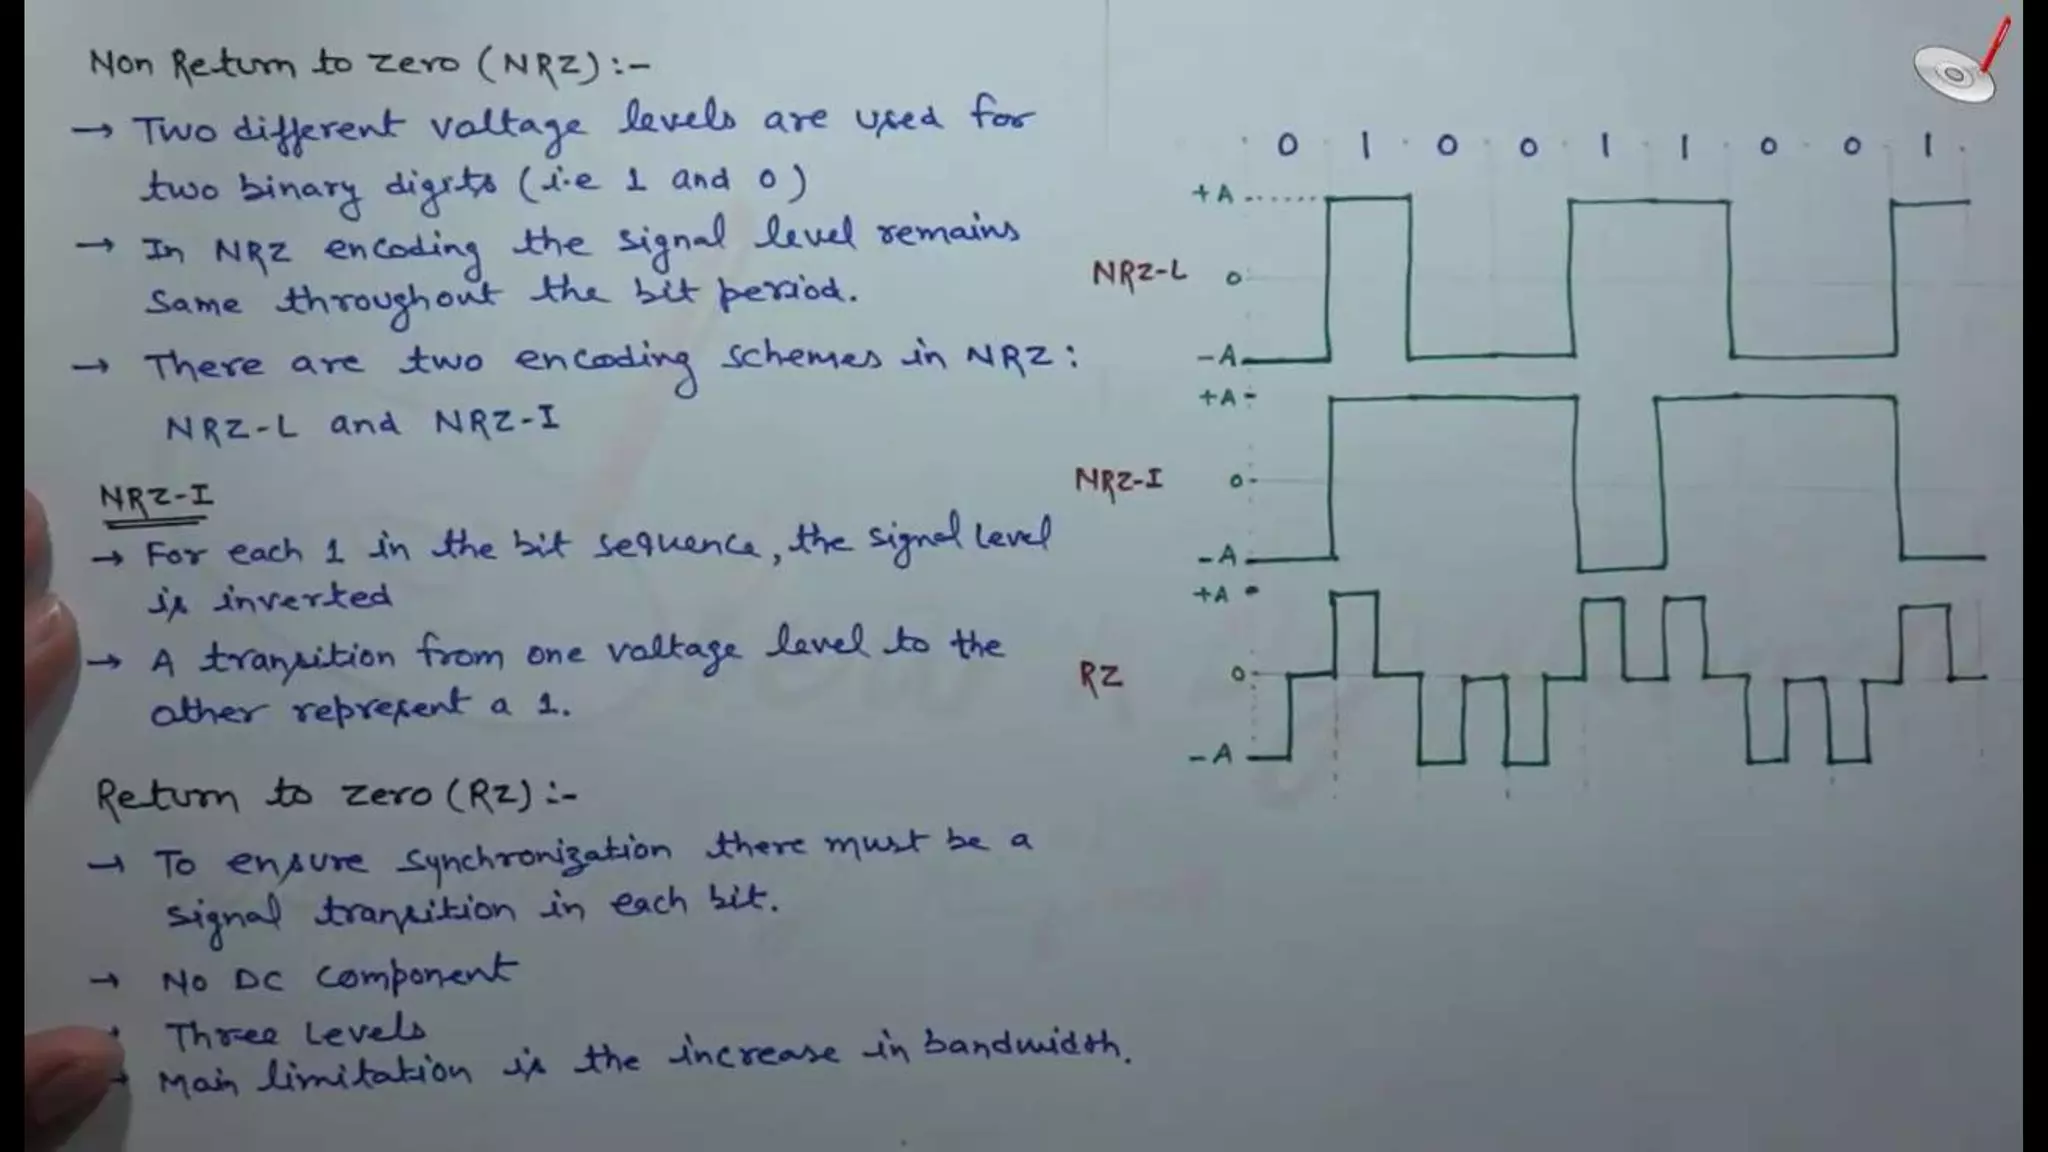 Non Return to zero (NRZ) :-
→ Two different voltage levels are used for
two binary digits (i.e 1 and 0)
→ In NRZ encoding the signal level remains
same throughout the bit period.
→ There are two encoding schemes in NRZ :
NRZ-L and NRZ-I
NRZ-I
→ For each 1 in the bit sequence, the signal level
is inverted
→ A transition from one voltage level to the
other represent a 1.
Return to zero (RZ) :-
→ To ensure synchronization there must be a
signal transition in each bit.
→ No DC component
Three Levels
→ Main limitation is the increase in bandwidth.
0 1 0 0 1 1 0 0 1
+A
NRZ-L 0
-A
+A
NRZ-I 0
-A
+A
RZ 0
-A